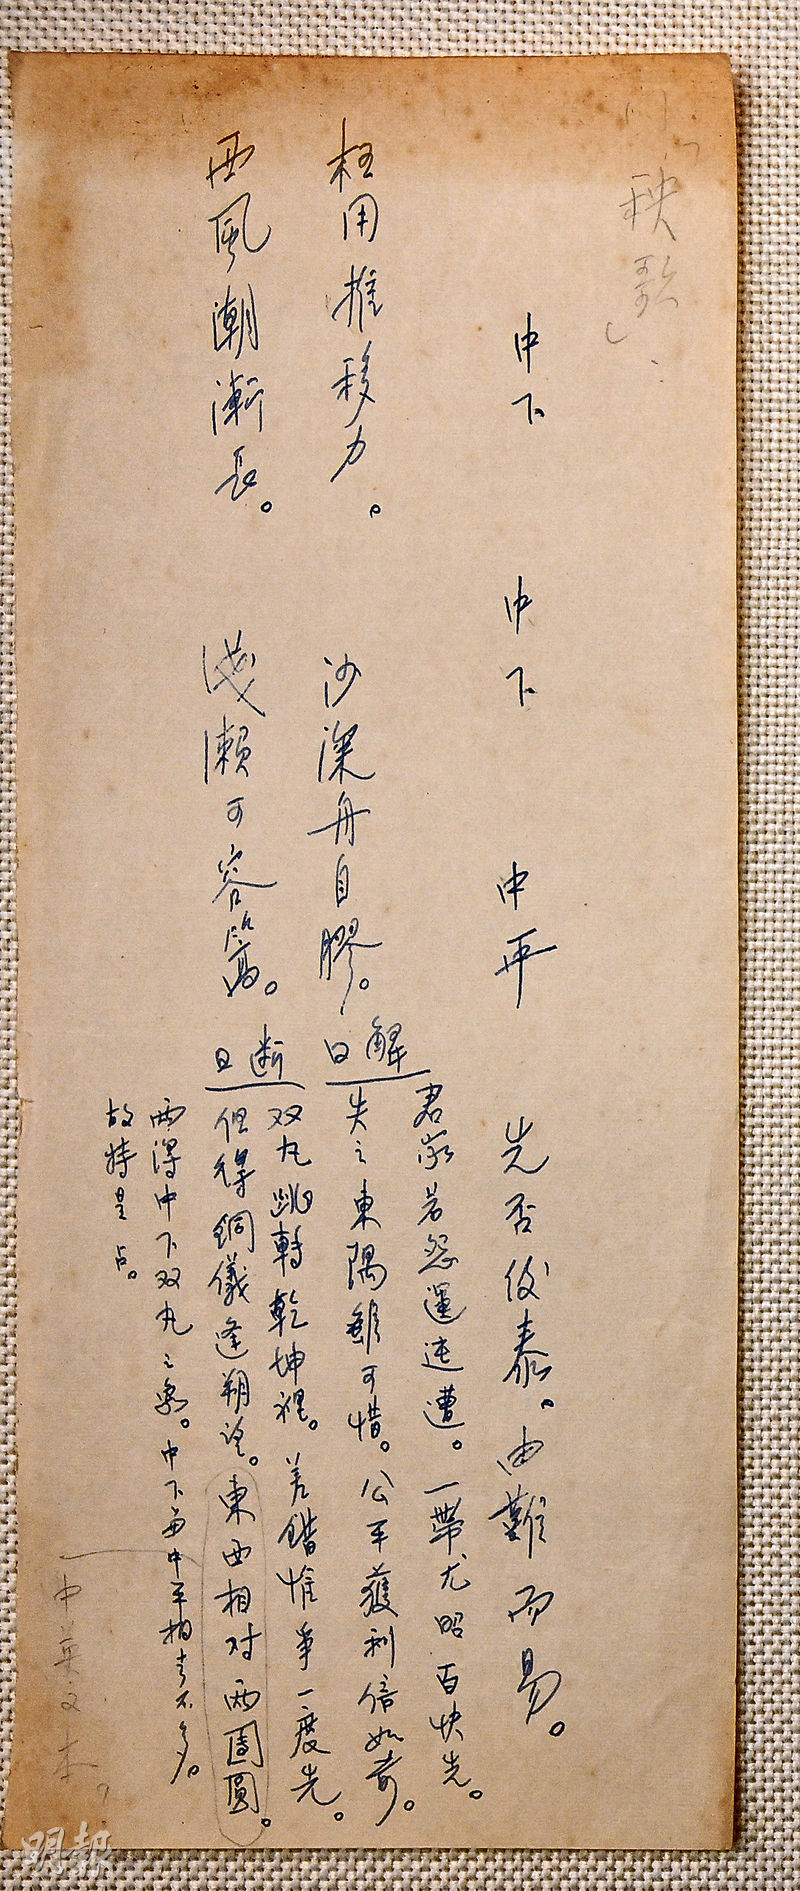 問「秧歌」：
中下 中下 中平 先否後泰。由難而易。
枉用推移力。 沙深舟自膠。
解曰
君家若怨運迍邅。一帶尤昭百快先。
失之東隅雖可惜。公平獲利倍如前。
西風潮漸長。 淺瀨可容篙。
断曰
双丸跳轉乾坤裡。差錯惟爭一度先。
但得銅儀逢朔望。東西相对两團圓。
两得中下双丸之象。中下与中平相去不多。
故特呈占。
中英文本？
明報